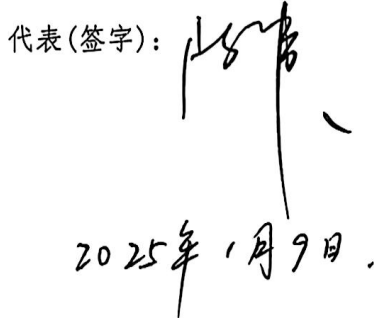 代表(签字):
2025年1月9日.